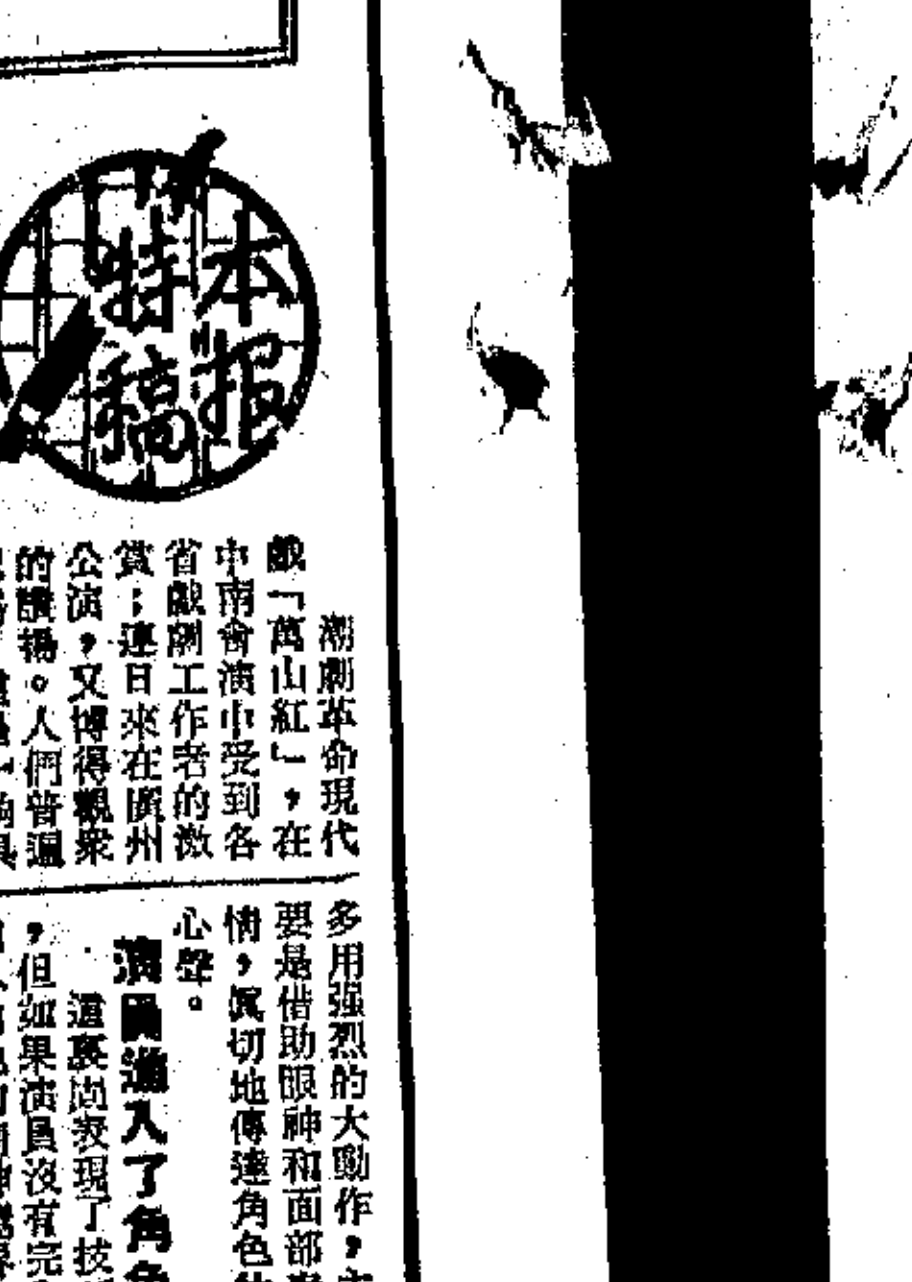 本报
特稿
潮劇革命現代
戲「萬山紅」，在
中南會演中受到各
省戲劇工作者的激
賞；連日來在廣州
公演，又博得觀衆
的讚揚。人們普遍
多用强烈的大動作，主
要是借助眼神和面部
情，眞切地傳達角色的
心聲。
演員進入了角色
這裏固表現了技
，但如果演員沒有完